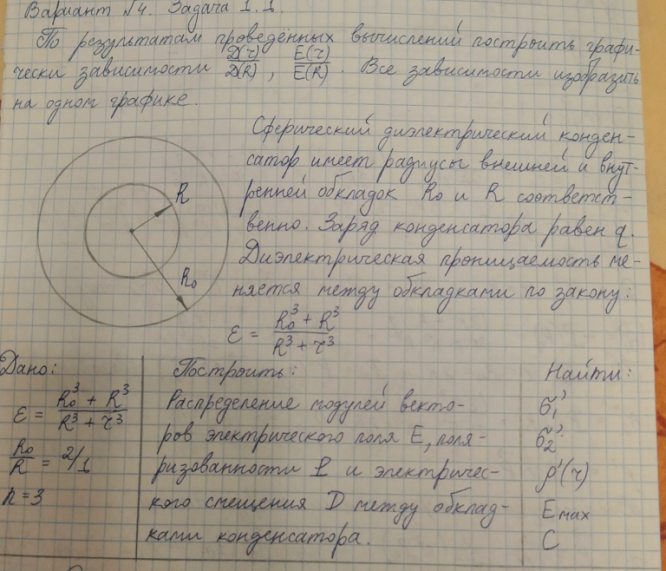 Вариант №4. Задача 1.1.
По результатам проведённых вычислений построить графи-
чески зависимости D(r)/D(R), E(r)/E(R). Все зависимости изобразить
на одном графике.
Сферический диэлектрический конден-
сатор имеет радиусы внешней и внут-
ренней обкладок R₀ и R соответст-
венно. Заряд конденсатора равен q.
Диэлектрическая проницаемость ме-
няется между обкладками по закону:
ε = (R₀³ + R³)/(R³ + r³)
R
R₀
Дано:
ε = (R₀³ + R³)/(R³ + r³)
R₀/R = 2/1
n = 3
Построить:
Распределение модулей векто-
ров электрического поля E, поля-
ризованности P и электричес-
кого смещения D между обклад-
ками конденсатора.
Найти:
σ₁'
σ₂'
ρ'(r)
Emax
C